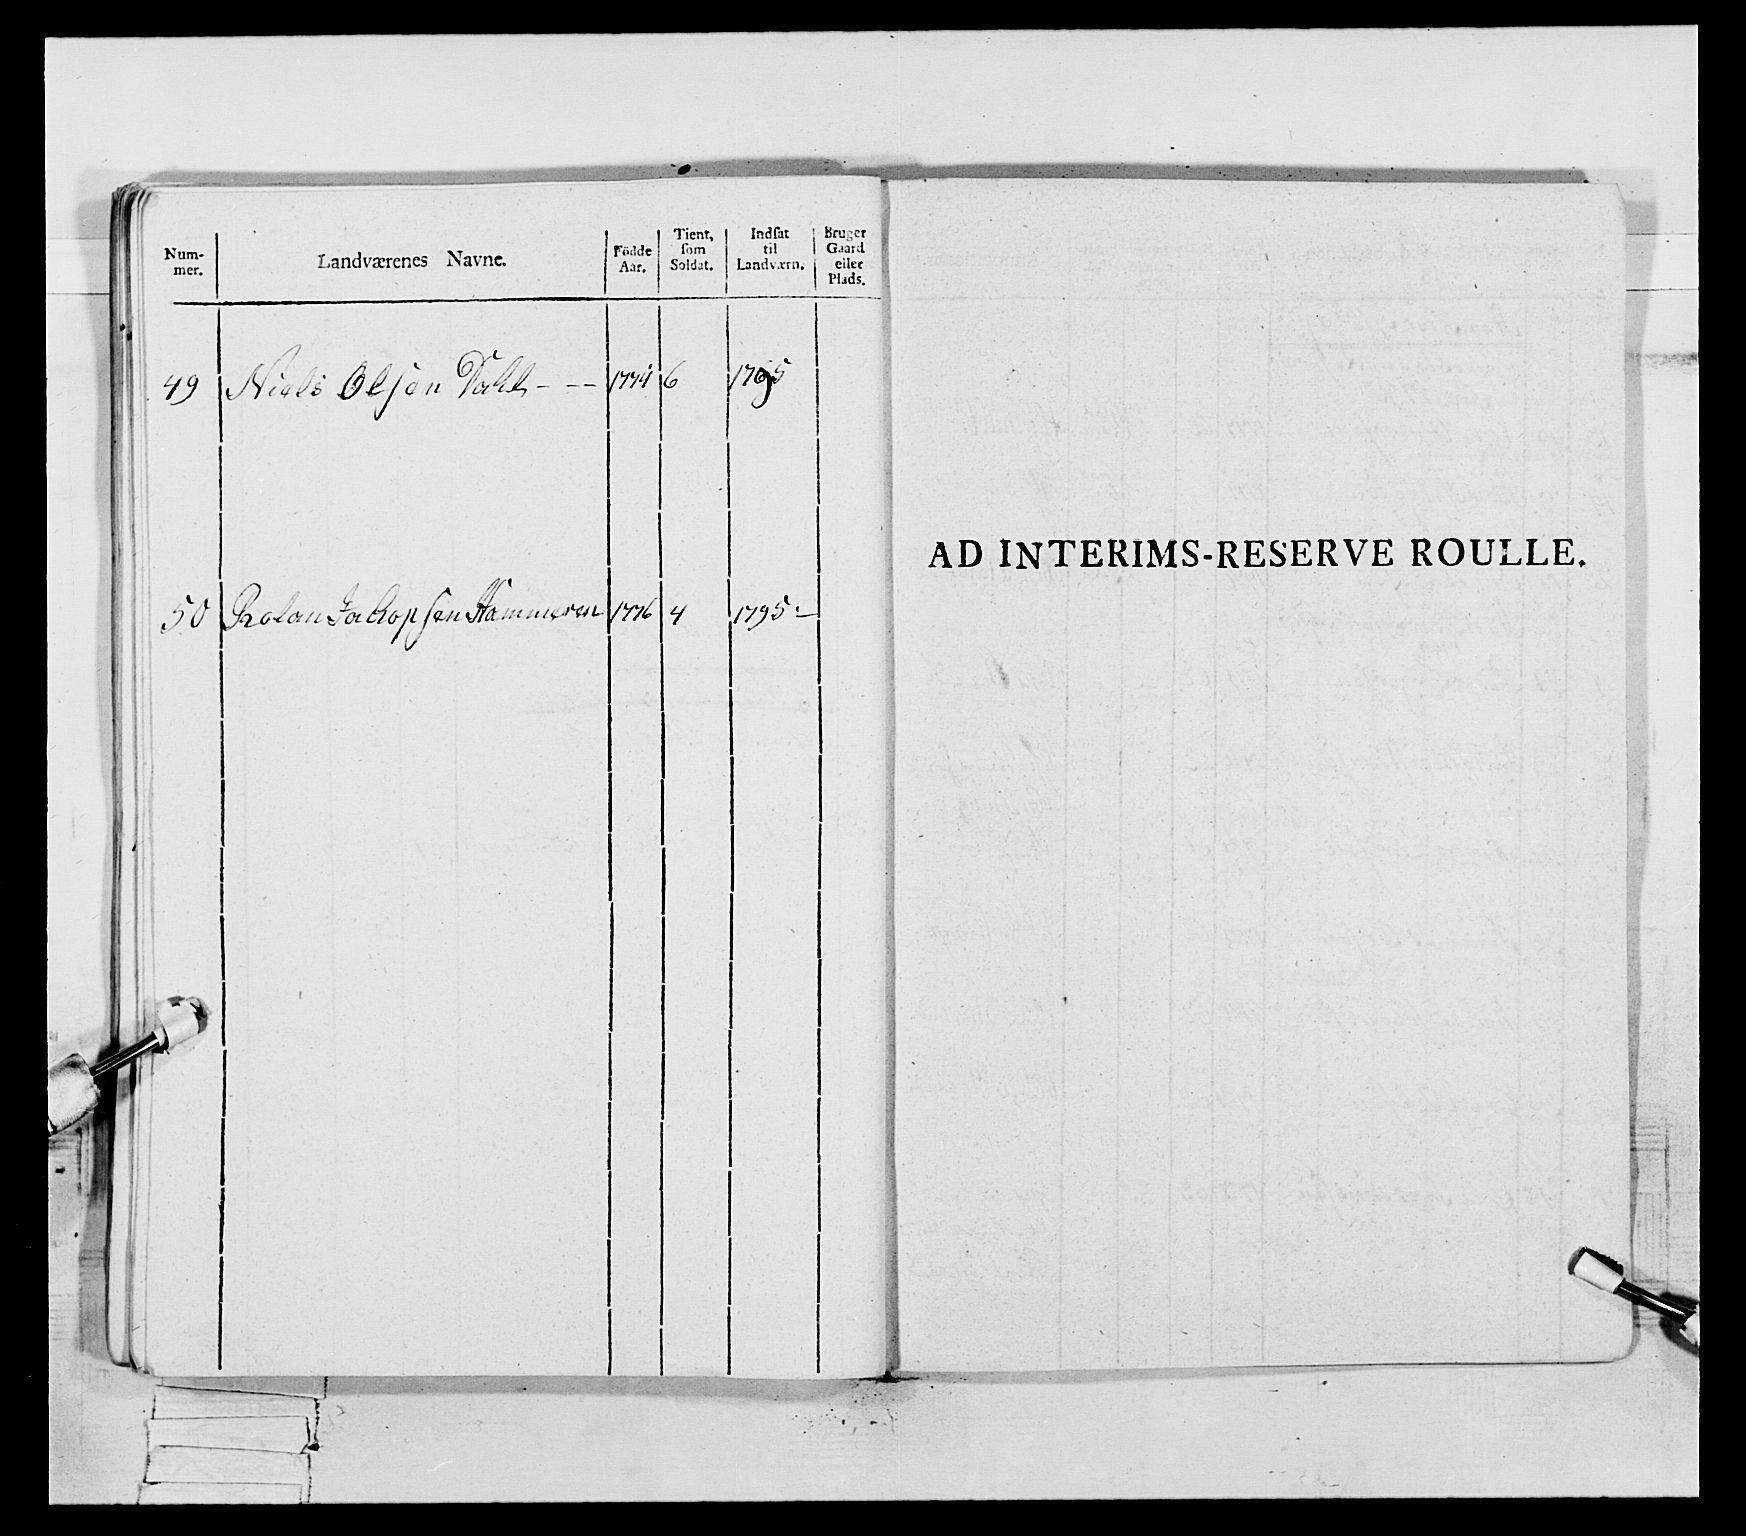 Num-
mer.
Landværenes Navne.
Födde
Aar.
Tient,
som
Soldat.
Indsat
til
Landværn.
Bruger
Gaard
eller
Plads.
49 Niels Olsen Dahl - -- 1774 6 1795
50 Rolan Jakopsen Hammeren 1776 4 1795 -
AD INTERIMS-RESERVE ROULLE.